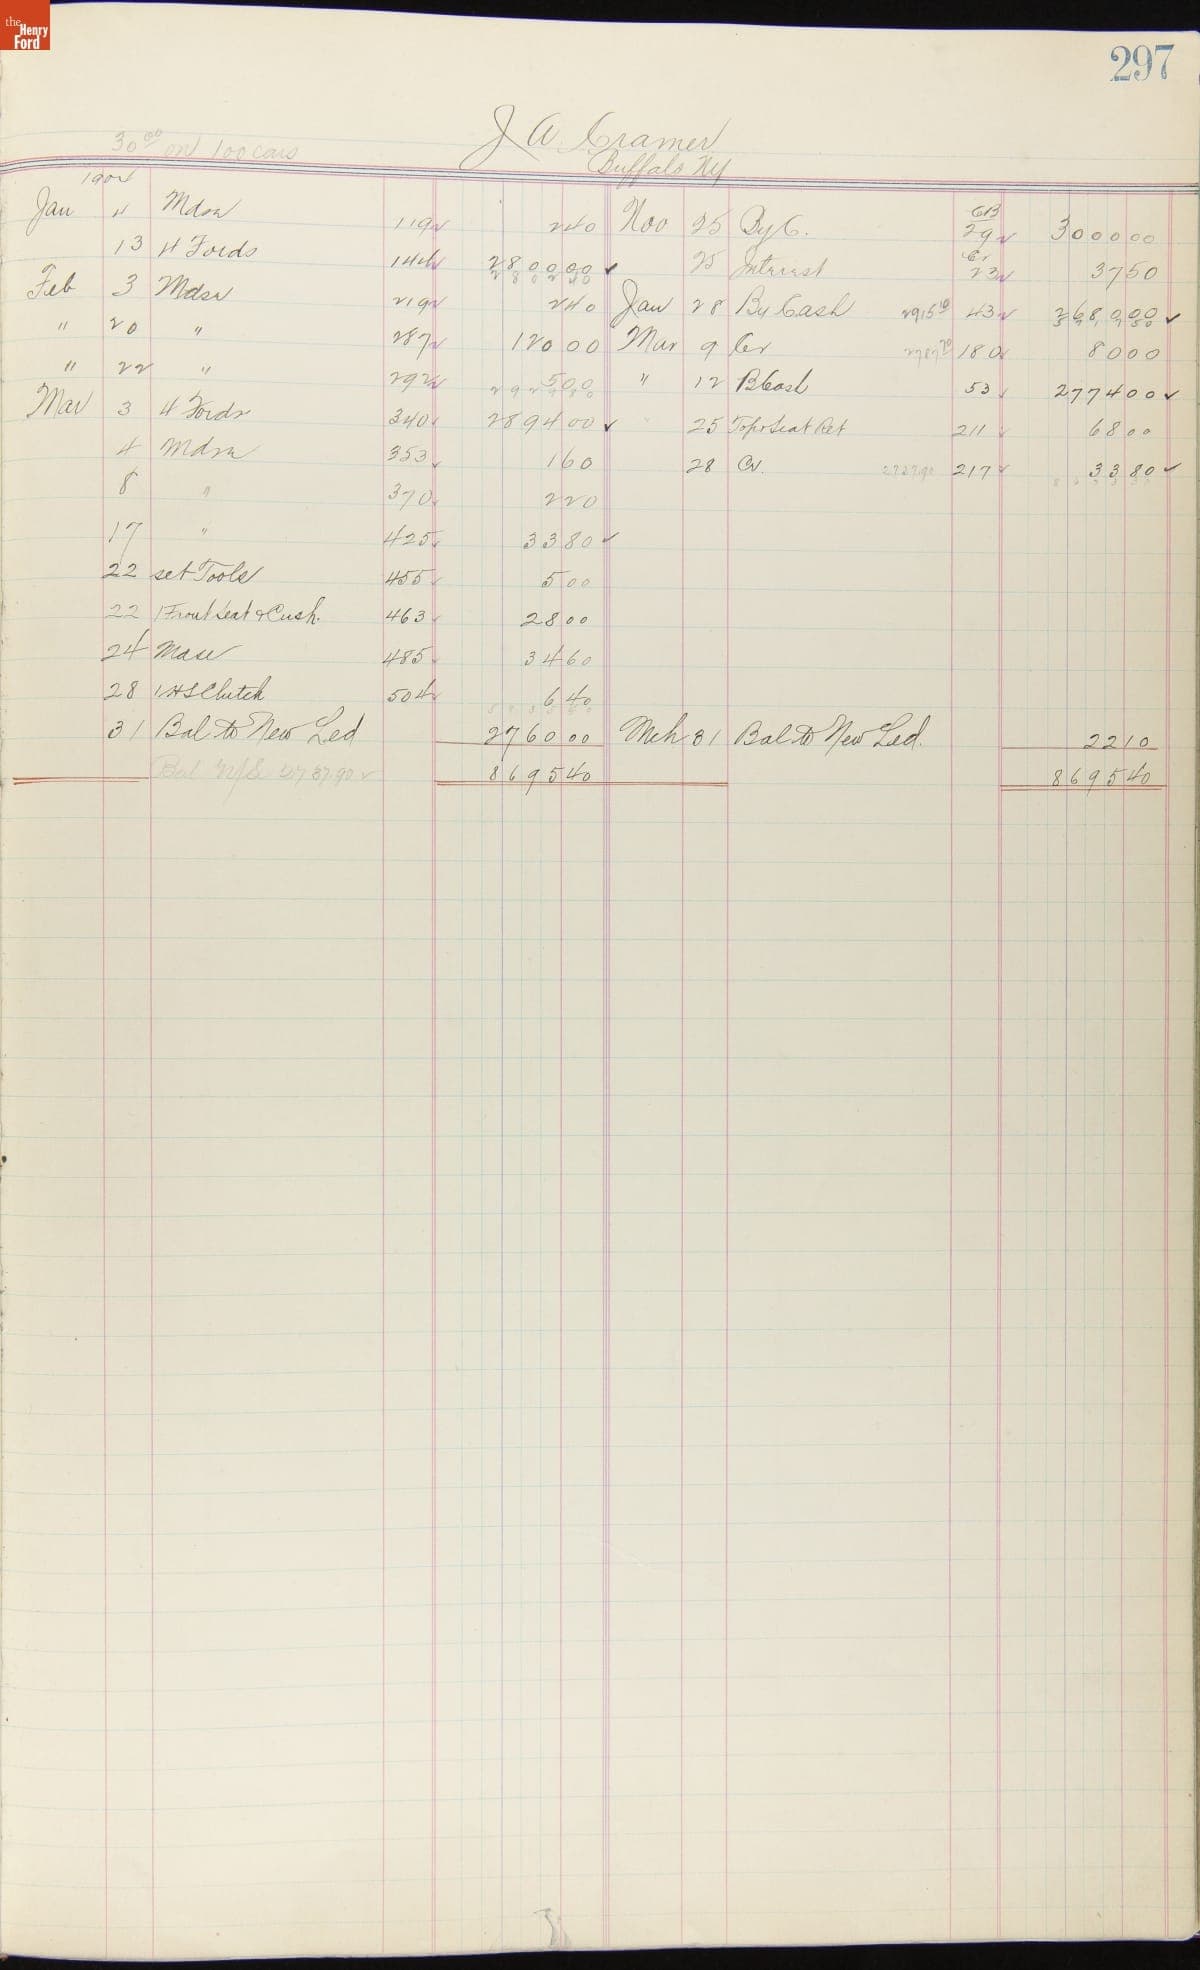 the
Henry
Ford
297
J A Cramer
30 00 on 100 cars
Buffalo NY
1904
Jan 4 Mdse 119 2 40 Nov 25 By C. CB 29 3000 00
13 4 Fords 144 2800 00 25 Interest Cr 23 37 50
2802 40
Feb 3 Mdse 219 2 40 Jan 28 By Cash 2915 10 43 2680 00
" 20 " 287 120 00 Mar 9 Cr 180 80 00
" 22 " 292 5 00 " 12 By Cash 53 2774 00
2929 80
Mar 3 4 Fords 340 2894 00 25 Top & Seat Ret 211 68 00
4 Mdse 353 1 60 28 Cr. 217 33 80
8 " 370 2 20
17 " 425 33 80
22 set Tools 455 5 00
22 1 Front Seat & Cush. 463 28 00
24 Mdse 485 34 60
28 1 HS Clutch 504 6 40
31 Bal to New Led 2760 00 Mch 31 Bal to New Led. 22 10
Bal 2737.90 8695 40 8695 40